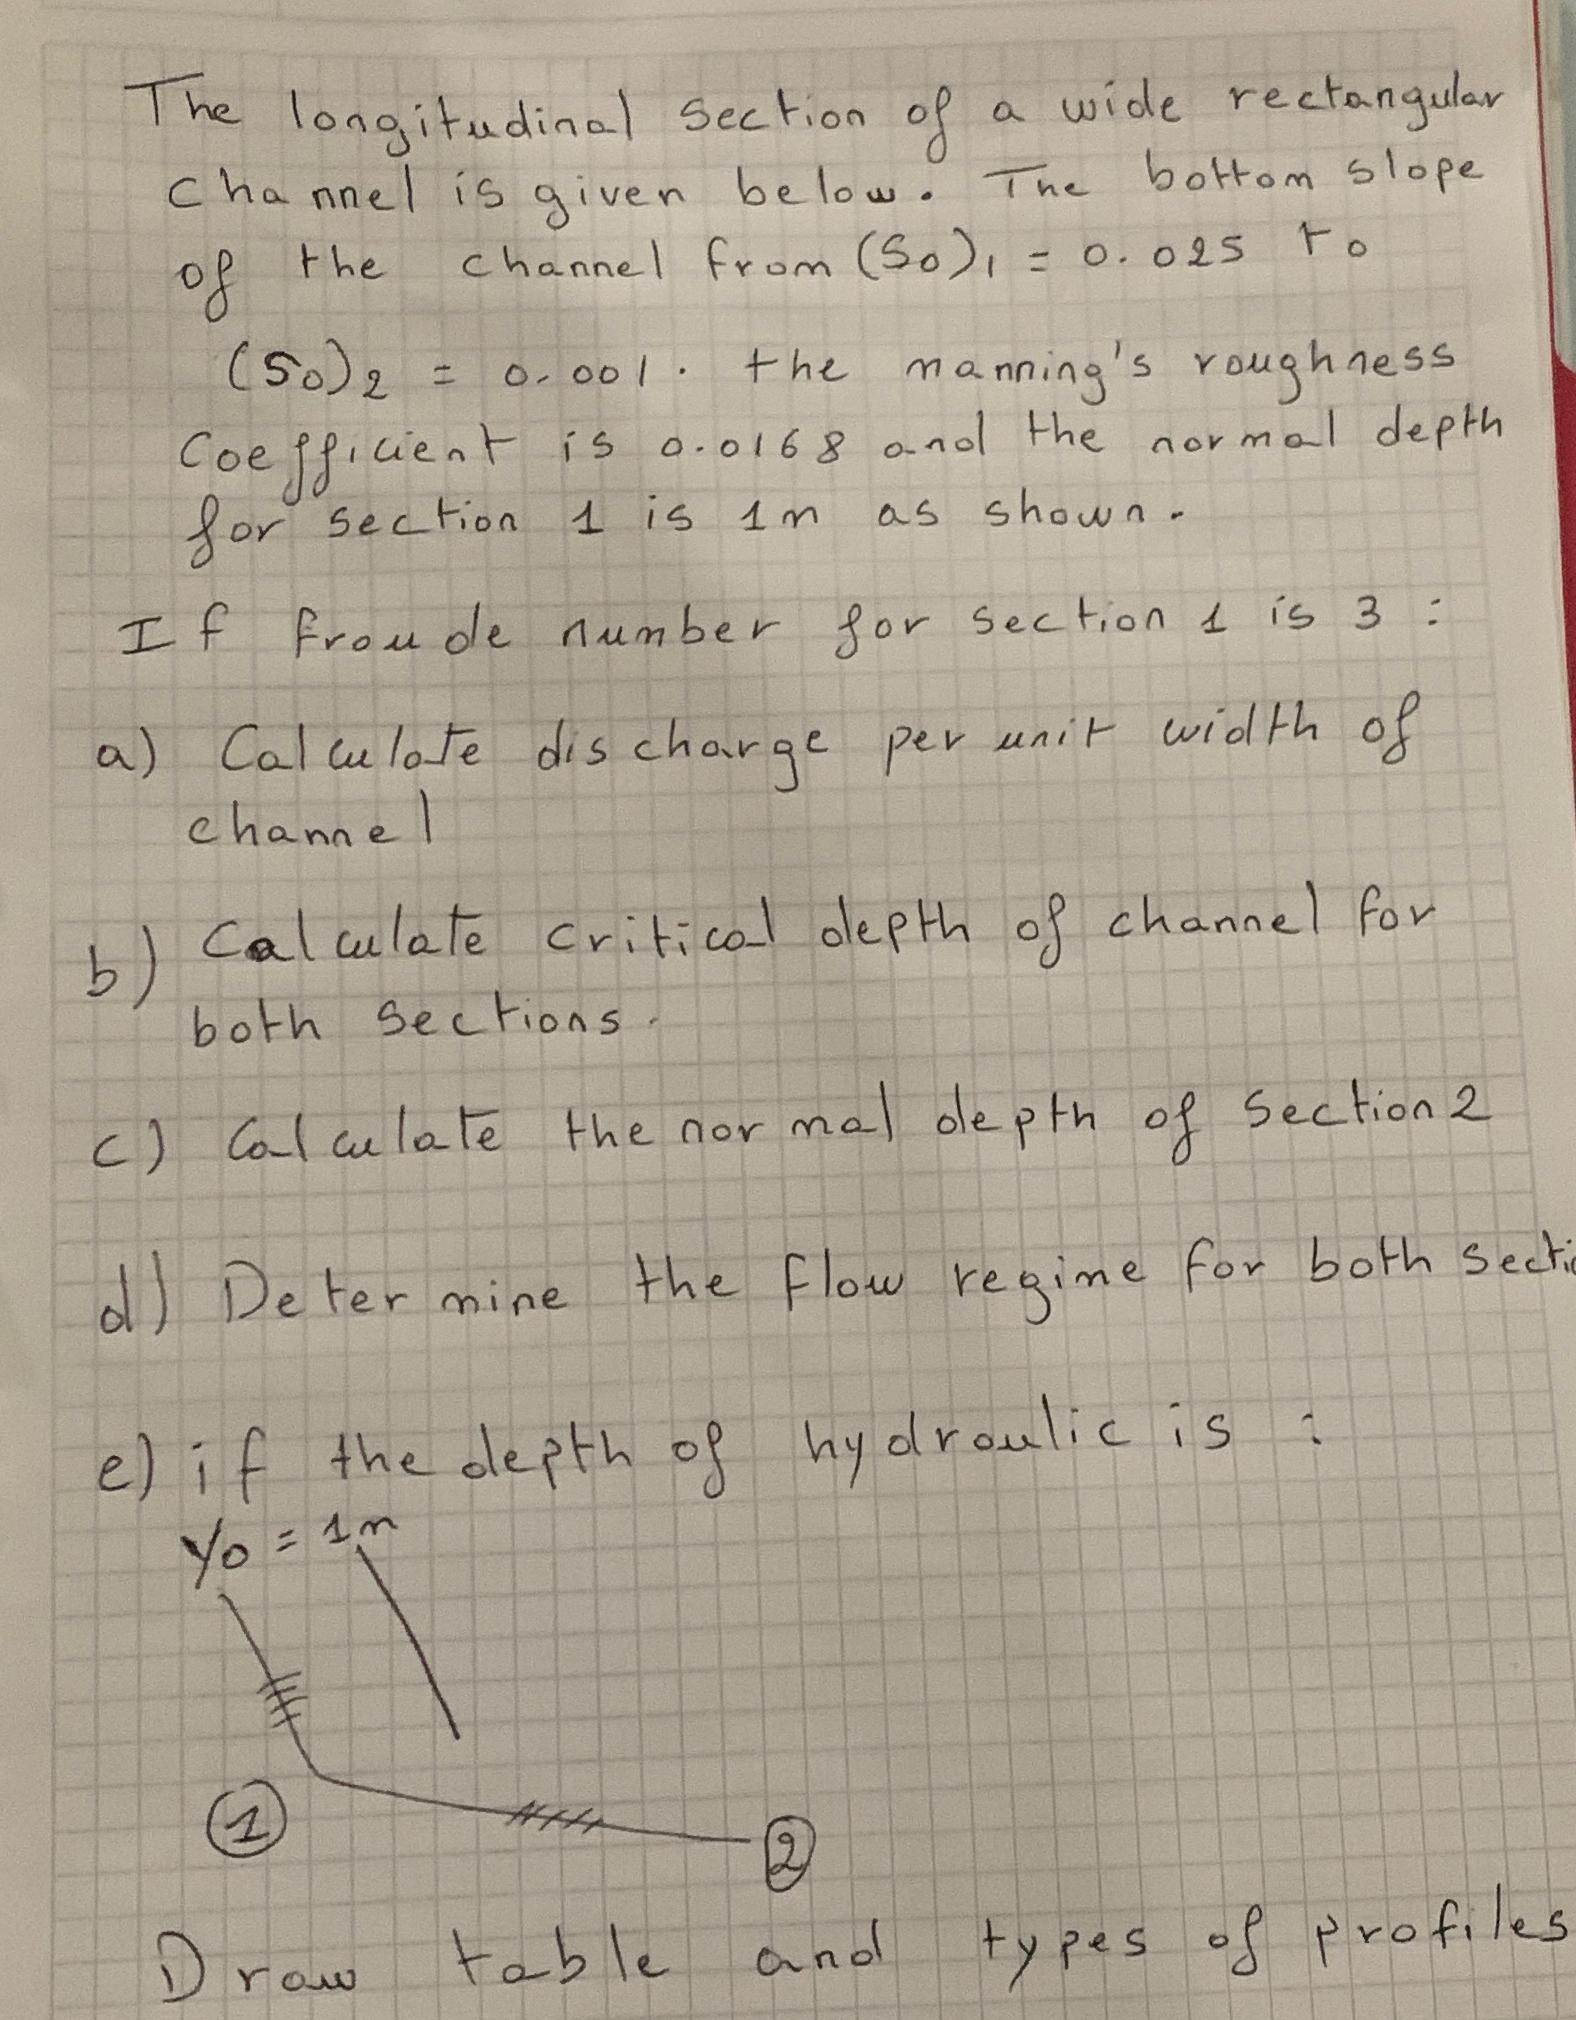 The longitudinal section of a wide rectangular
channel is given below. The bottom slope
of the channel from (So)1 = 0.025 to
(So)2 = 0.001. the manning's roughness
Coefficient is 0.0168 and the normal depth
for section 1 is 1m as shown.
If froude number for section 1 is 3 :
a) Calculate discharge per unit width of
channel
b) Calculate critical depth of channel for
both sections.
c) Calculate the normal depth of section 2
d) Determine the flow regime for both secti
e) if the depth of hydraulic is :
Yo = 1m
1
2
Draw table and types of profiles